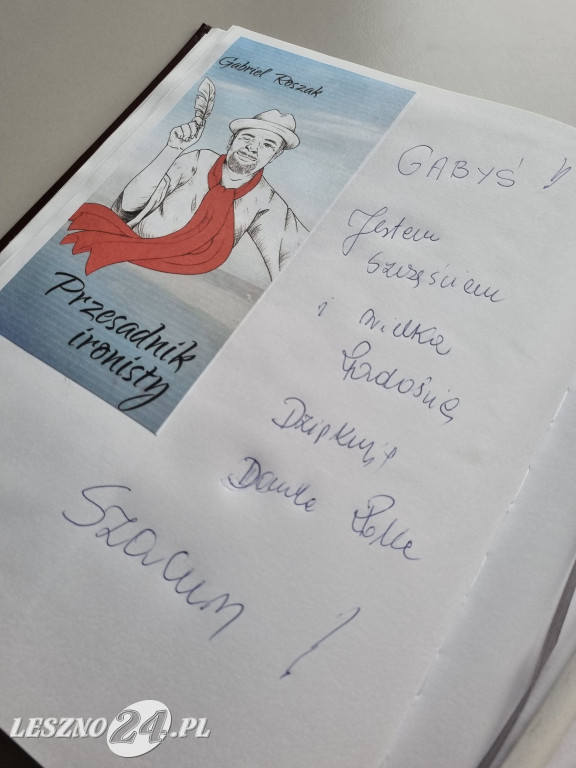 Gabriel Roszak
Przesadnik
ironisty
GABYŚ
Jestem
szczęściem
i wielką
radością
Dziękuję
Szacun !
LESZNO24.PL